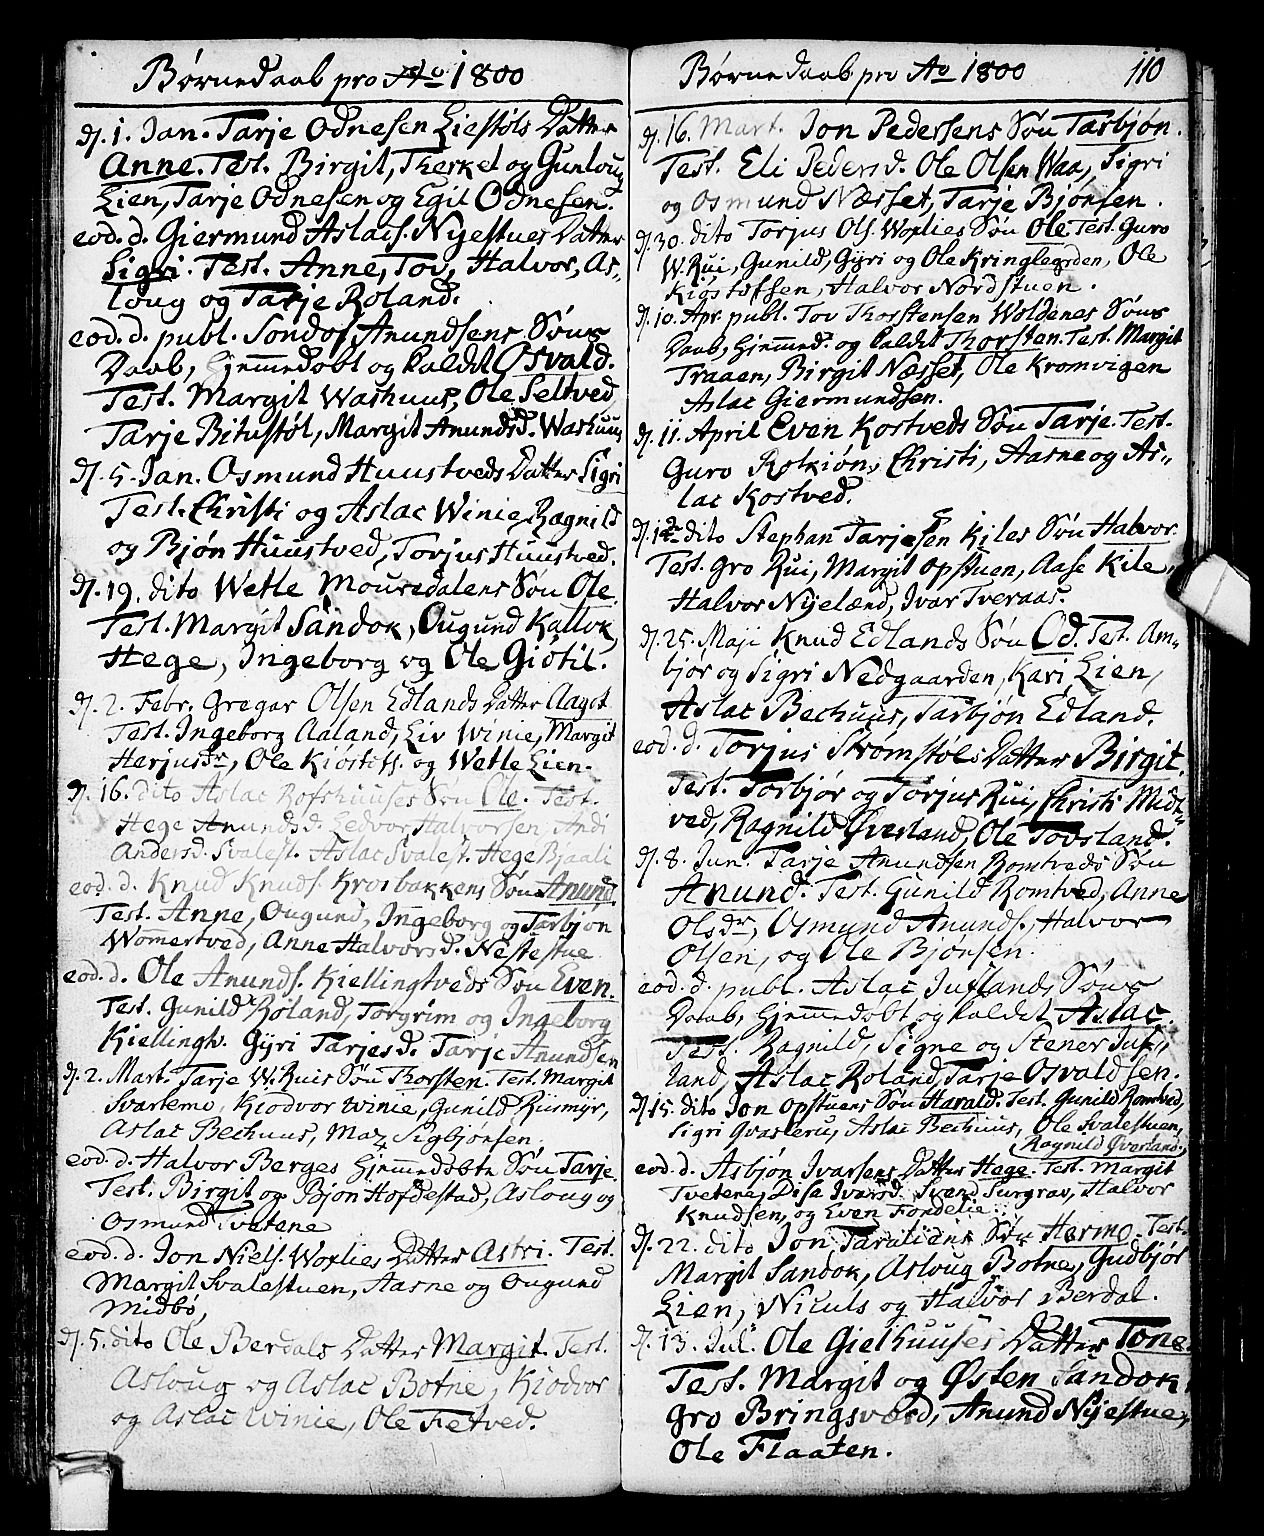 Børnedaab pro Ao 1800
d. 1. Jan. Tarje Odnesen Liestøls Datter
Anne. Test. Birgit, Therkel og Gunloug
Lien, Tarje Odnesen og Egil Odnesen.
eod. d. Giermund Aslacs. Nyestues Datter
Sigri. Test. Anne, Tov, Halvor, As-
loug og Tarje Roland.
eod. d. publ. Sondof Anundsens Søns
Daab, hjemmedøbt og kaldet Osvald.
Test. Margit Washuus, Ole Seltved
Tarje Bitustøl, Margit Anundsd. Washuus
d. 5. Jan. Osmund Huustveds Datter Sigri
Test. Christi og Aslac Winie, Ragnild
og Bjøn Huustved, Torjus Huustved.
d. 19. dito Wetle Mousedalens Søn Ole.
Test. Margit Sandok, Ougund Kallok
Hege, Ingeborg og Ole Giøtil.
d. 2. Febr. Gregar Olsen Edlands Datter Aagot
Test. Ingeborg Aaland, Liv Winie, Margit
Herjusdr, Ole Kiøstifs. og Wetle Lien.
d. 16. dito Aslac Rofshuuses Søn Ole. Test.
Hege Anundsd. Ledvor Halvorsen, Andi
Andersd. Svalest. Aslac Svalest. Hege Bjaali
eod. d. Knud Knuds. Krosbakkens Søn Anund.
Test. Anne, Ougund, Ingeborg og Tarbjøn
Wommertved, Anne Halvorsd. Nestestue
eod. d. Ole Anunds. Kiellingtveds Søn Even.
Test. Gunild Roland, Torgrim og Ingeborg
Kiellingtv. Gyri Tarjesd. Tarje Anundsen
d. 2. Mart. Tarje W. Ruis Søn Thorsten. Test. Margit
Svartemo, Kiodvor Winie, Gunild Riismyr,
Aslac Bechuus, Maz Sigbjønsen.
eod. d. Halvor Berges hjemmedøbte Søn Tarje
Test. Birgit og Bjøn Hofdestad, Asloug og
Osmund Tvetene
eod. d. Jon Niels. Woxlies Datter Astri. Test.
Margit Svalestuen, Aasne og Ougund
Midbø,
d. 5. dito Ole Berdals Datter Margit. Test.
Asloug og Aslac Botne, Kiodvor
og Aslac Winie, Ole Fetved.
Børnedaab pro Ao 1800
110
d. 16. Mart. Jon Pedersens Søn Tarbjøn.
Test. Eli Pedersd. Ole Olsen Waa, Sigri
og Osmund Næsset, Tarje Bjønsen.
d. 30. dito Torjus Ols. Woxlies Søn Ole. Test. Guro
W. Rui, Gunild, Gyri og Ole Kringlegrden, Ole
Kiøstofsen, Halvor Nordstuen.
d. 10. Apr. publ. Tov Thorstensen Woldenes Søns
Daab, hjemmed. og kaldet Thorsten. Test. Margit
Traaen, Birgit Næsset, Ole Kromvigen
Aslac Giermundsen.
d. 11. April Even Kostveds Søn Tarje. Test.
Guro Rotkiøn, Christi, Aasne og As-
lac Kostved.
d. 12 dito Stephan Tarjesen Kiles Søn Halvor.
Test. Gro Rui, Margit Opstuen, Aase Kile,
Halvor Nyelænd, Ivar Tveraas.
d. 25. Maji Knud Edlands Søn Od. Test. Am-
bjør og Sigri Nedgaarden, Kari Lien,
Aslac Bechuus, Tarbjøn Edland.
eod. d. Torjus Strømstøls Datter Birgit.
Test. Torbjør og Torjus Rui, Christi Midt-
ved, Ragnild Øverland, Ole Tovsland.
d. 8. Jun. Tarje Anundsen Romtveds Søn
Anund. Test. Gunild Romtved, Anne
Olsdr, Osmund Anunds., Halvor
Olsen, og Ole Bjønsen.
eod. d. publ. Aslac Juslands Søns
Daab, hjemmedøbt og kaldet Aslac.
Test. Ragnild, Signe og Stener Jus-
land, Aslac Roland, Tarje Osvaldsen.
d. 15. dito Jon Opstuens Søn Harald. Test. Gunild Romtved,
Sigri Qvasteru, Aslac Bechuus, Ole Svalestuen,
Ragnild Øverland.
eod. d. Asbjøn Ivarsens Datter Hege. Test. Margit
Tvetene, Disa Ivarsd. Svend Surgrav, Halvor
Knudsen, og Even Fordelie.
d. 22. dito Jon Taraldens Søn Hermo. Test.
Margit Sandok, Asloug Botne, Gudbjør
Lien, Niculs og Halvor Berdal.
d. 13. Jul. Ole Gielhuuses Datter Tone.
Test. Margit og Østen Sandok,
Gro Bringsværd, Anund Nyestue,
Ole Flaaten.